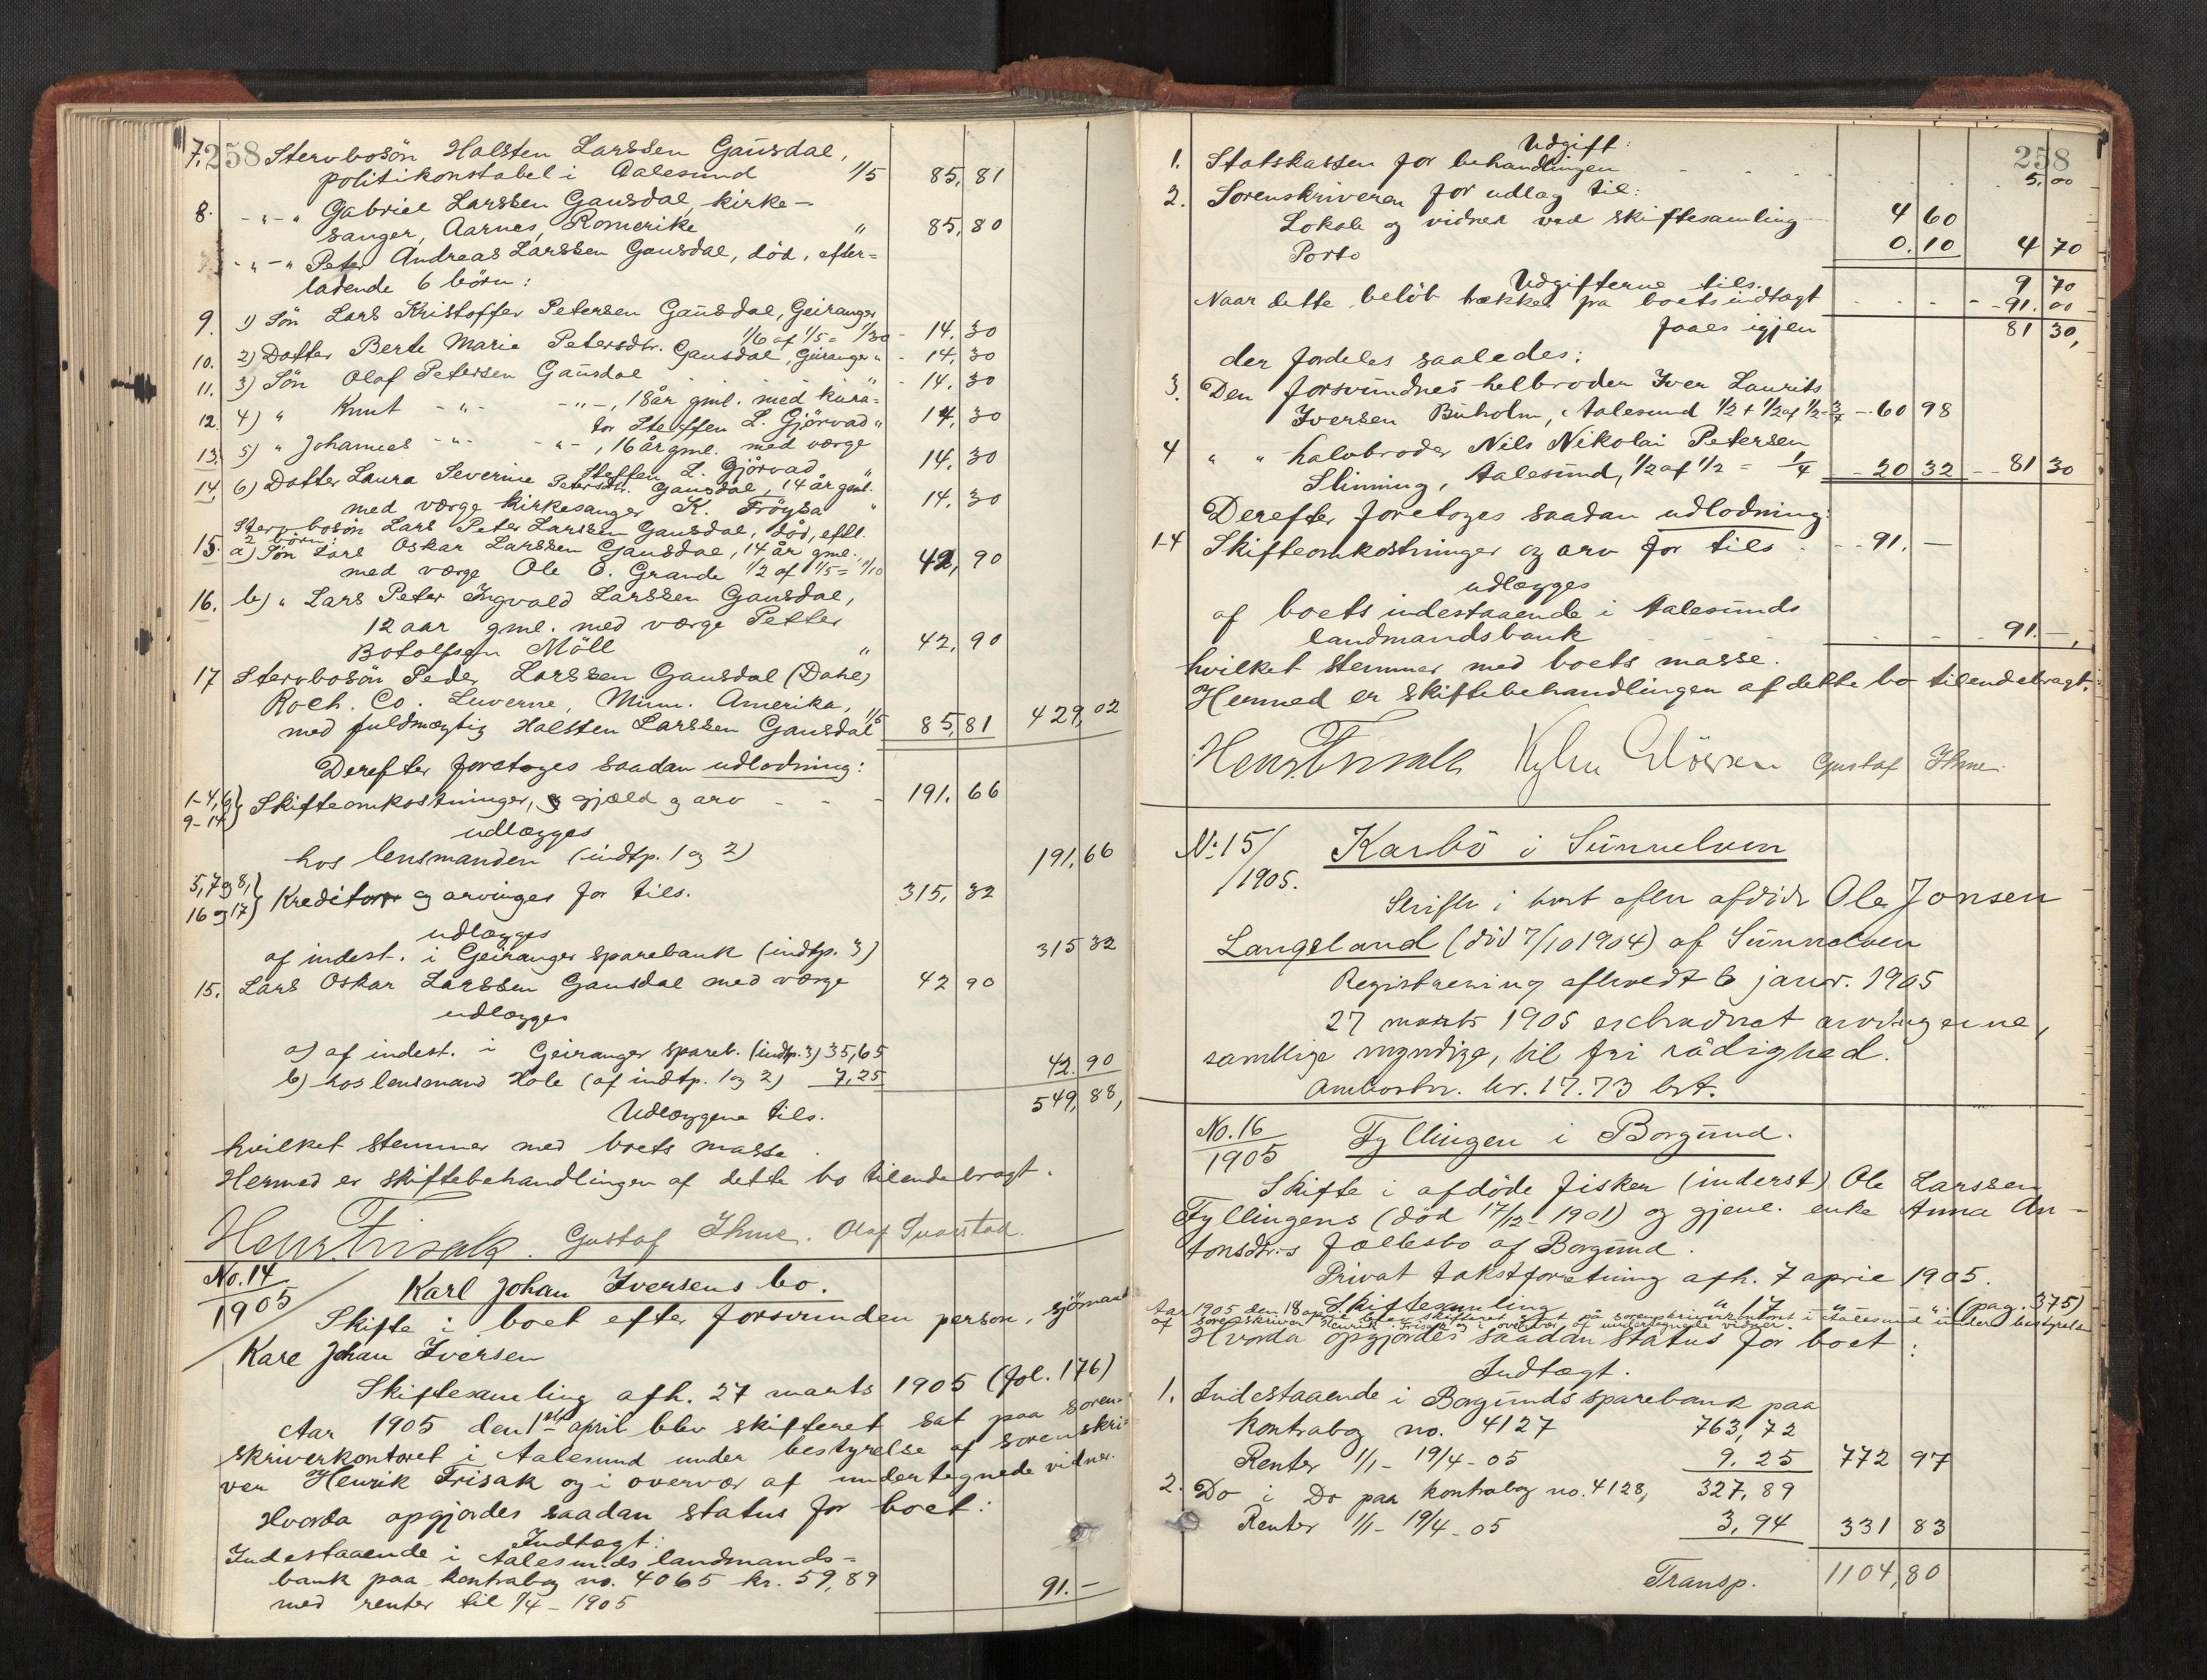 7. 258 Stervbosön Halsten Larssen Gausdal,
politikonstabel i Aalesund 1/5 85,81
8. - " - " Gabriel Larssen Gausdal, kirke-
sanger, Aarnes, Romerike " 85,80
- " - " Peter Andreas Larssen Gausdal, död, efter=
ladende 6 börn:
9. 1) Sön Lars Kristoffer Petersen Gausdal, Geiranger
1/6 af 1/5 = 1/30 - 14,30
10. 2) Datter Berte Marie Petersdtr. Gausdal, Geiranger " - 14,30
11. 3) Sön Olaf Petersen Gausdal " - 14,30
12. 4) " Knut - " - - " -, 18 år gml. med kura=
tor Steffen L. Gjörvad " 14,30
13. 5) " Johannes - " - - " -, 16 år gml. med værge
Steffen L. Gjörvad " 14,30
14. 6) Datter Laura Severine Petersdtr. Gausdal, 14 år gml.
med værge kirkesanger K. Fröysa " 14,30
Stervbosön Lars Peter Larssen Gausdal, död, eftl.
2 börn:
15. a) Sön Lars Oskar Larssen Gausdal, 14 år gml.
med værge Ole E. Grande 1/2 af 1/5 = 1/10 42,90
16. b) " Lars Peter Ingvald Larssen Gausdal,
12 aar gml. med værge Petter
Botolfsen Möll " 42,90
17 Stervbosön Peder Larssen Gausdal (Dahl)
Roch. Co. Luverne, Minn. Amerika,
med fuldmægtig Halsten Larssen Gausdal 1/5 85,81 429,02
Derefter foretoges saadan udlodning:
1-4, 6, 9-14 } Skifteomkostninger, gjæld og arv - - - 191,66
udlægges
hos lensmanden (indtp. 1 og 2) 191,66
5, 7 og 8, 16 og 17 } Kreditor og arvinger for tils. 315,32
udlægges
af indest. i Geiranger sparebank (indtp. 3) 315 32
15. Lars Oskar Larssen Gausdal med værge 42 90
udlægges
a) af indest. i Geiranger spareb. (indtp. 3) 35,65
b) hos lensmand Hole (af indtp. 1 og 2) 7,25 42.90
Udlæggene tils. 549,88,
hvilket stemmer med boets masse.
Hermed er skiftebehandlingen af dette bo tilendebragt.
Henr Frisak. Gustaf Ihme. Olaf
No. 14/1905 Karl Johan Iversens bo.
Skifte i boet efter forsvunden person, sjömand
Karl Johan Iversen
Skiftesamling afh. 27 marts 1905 (fol. 176)
Aar 1905 den 1ste april blev skifteret sat paa soren-
skriverkontoret i Aalesund under bestyrelse af sorenskri-
ver Henrik Frisak og i overvær af undertegnede vidner.
Hvorda opgjordes saadan status for boet:
Indtægt:
Indestaaende i Aalesunds landmands=
bank paa kontrabog no. 4065 kr. 59,89
med renter til 1/4 - 1905 91.-
258
Udgift:
1. Statskassen for behandlingen 5,00
2. Sorenskriveren for udlag til:
Lokale og vidner ved skiftesamling 4 60
Porto 0.10 4 70
Udgifterne tils. 9 70
Naar dette belöb trækkes fra boets indtægt - 91.00
faaes igjen 81 30,
der fordeles saaledes:
3. Den forsvundnes helbroder Iver Laurits
Iversen Buholm, Aalesund 1/2 + 1/2 af 1/2 = 3/4 - 60 98
4 " " halvbroder Nils Nikolai Petersen
Slinning, Aalesund, 1/2 af 1/2 = 1/4 - 20 32 - - 81 30
Derefter foretoges saadan udlodning:
1-4 Skifteomkostninger og arv for tils. - - 91.-
udlægges
af boets indestaaende i Aalesunds
landmandsbank 91.-,
hvilket stemmer med boets masse.
Hermed er skiftebehandlingen af dette bo tilendebragt.
Henr Frisak Gustaf Ihme.
No. 15/1905. Karlbö i Sunnelven
Skifte i boet efter afdöde Ole Jonsen
Langeland (död 7/10 1904) af Sunnelven
Registrering afholdt 6 januar. 1905
27 marts 1905 arvingerne,
samtlige myndige, til fri rådighed.
kr. 17.73 bet.
No. 16/1905 Fyllingen i Borgund.
Skifte i afdöde fisker (inderst) Ole Larssen
Fyllingens (död 17/12 - 1901) og gjenl. enke Anna An-
tonsdtr-s fællesbo af Borgund.
Privat takstforretning afh. 7 april 1905.
Skiftesamling " 17 " " (pag. 375)
Aar 1905 den 18 april blev skifteret sat på sorenskriverkontoret i Aalesund under bestyrelse
af sorenskriver Henrik Frisak og i overvær af undertegnede vidner.
Hvorda opgjordes saadan status for boet:
Indtægt.
1. Indestaaende i Borgunds sparebank paa
kontrabog no. 4127 763,72
Renter 1/1 - 19/4 - 05 9.25 772 97
2. Do i Do paa kontrabog no. 4128, 327,89
Renter 1/1 - 19/4 - 05 3,94 331 83
Transp. 1104,80